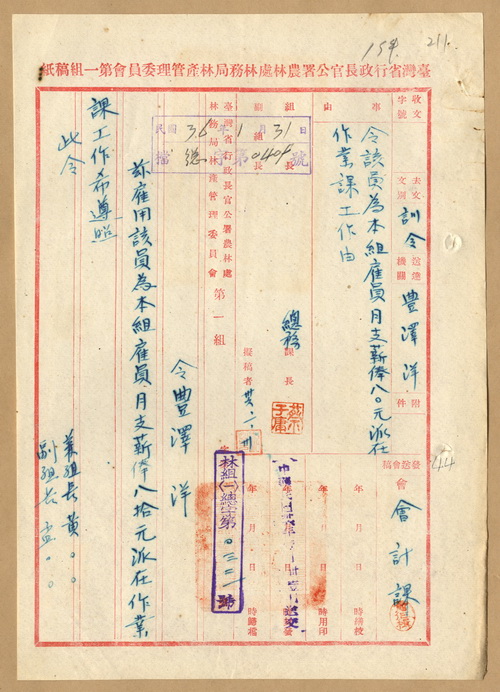 211.
159.
臺灣省行政長官公署農林處林務局林產管理委員會第一組稿紙
收文字號
去文文別 訓令
送達機關 豐澤洋
附件
事由
令該員為本組雇員月支薪俸八〇元派在
作業課工作由
組長
組長
課長
總務
擬稿者
民國36年1月31日
檔 總字第0404號
會計課
發送會稿會
44
年月日時繕校
年月日時用印
年月日時發
年月日時歸檔
林組(一)總字第〇三二一號
臺灣省行政長官公署農林處
林務局林產管理委員會 第一組
令豐澤洋
茲雇用該員為本組雇員月支薪俸八拾元派在作業
課工作希遵照
此令
兼組長黃〇〇
副組長孟〇〇